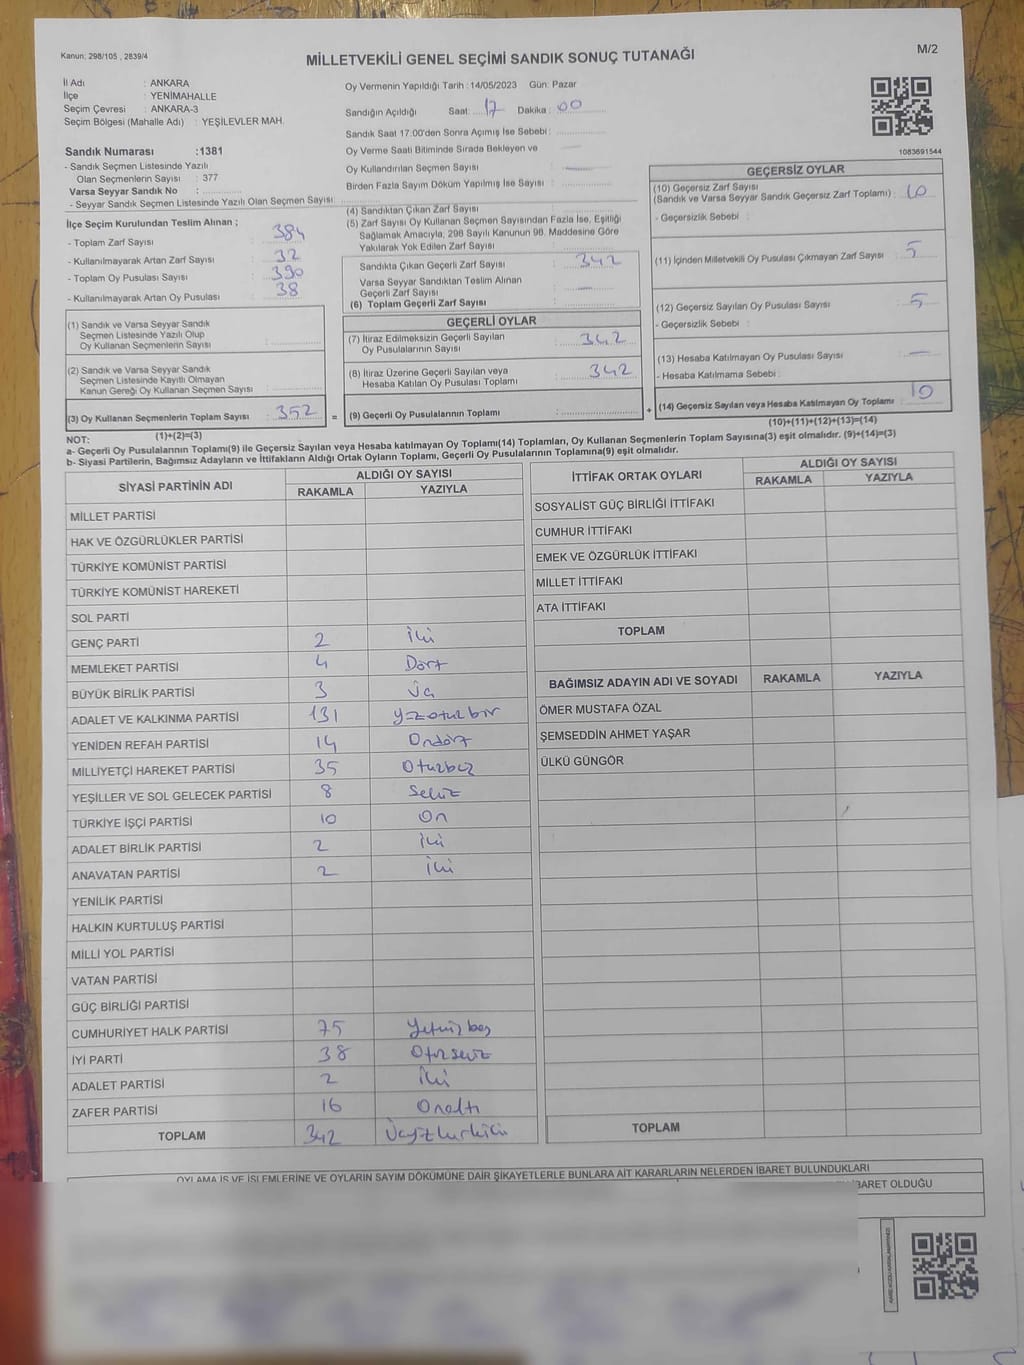 Kanun: 298/105 , 2839/4
MİLLETVEKİLİ GENEL SEÇİMİ SANDIK SONUÇ TUTANAĞI
M/2
İl Adı : ANKARA
İlçe : YENİMAHALLE
Seçim Çevresi : ANKARA-3
Seçim Bölgesi (Mahalle Adı) : YEŞİLEVLER MAH.
Sandık Numarası :1381
- Sandık Seçmen Listesinde Yazılı
Olan Seçmenlerin Sayısı : 377
Varsa Seyyar Sandık No :
- Seyyar Sandık Seçmen Listesinde Yazılı Olan Seçmen Sayısı
Oy Vermenin Yapıldığı Tarih : 14/05/2023 Gün: Pazar
Sandığın Açıldığı Saat: 17 Dakika : 00
Sandık Saat 17:00'den Sonra Açımış İse Sebebi :
Oy Verme Saati Bitiminde Sırada Bekleyen ve
Oy Kullandırılan Seçmen Sayısı
Birden Fazla Sayım Döküm Yapılmış İse Sayısı :
1083691544
İlçe Seçim Kurulundan Teslim Alınan ;
- Toplam Zarf Sayısı : 384
- Kullanılmayarak Artan Zarf Sayısı : 32
- Toplam Oy Pusulası Sayısı : 390
- Kullanılmayarak Artan Oy Pusulası : 38
(1) Sandık ve Varsa Seyyar Sandık
Seçmen Listesinde Yazılı Olup
Oy Kullanan Seçmenlerin Sayısı :
(2) Sandık ve Varsa Seyyar Sandık
Seçmen Listesinde Kayıtlı Olmayan
Kanun Gereği Oy Kullanan Seçmen Sayısı :
(3) Oy Kullanan Seçmenlerin Toplam Sayısı : 352
(1)+(2)=(3)
(4) Sandıktan Çıkan Zarf Sayısı :
(5) Zarf Sayısı Oy Kullanan Seçmen Sayısından Fazla İse, Eşitliği
Sağlamak Amacıyla, 298 Sayılı Kanunun 98. Maddesine Göre
Yakılarak Yok Edilen Zarf Sayısı :
Sandıkta Çıkan Geçerli Zarf Sayısı : 342
Varsa Seyyar Sandıktan Teslim Alınan
Geçerli Zarf Sayısı :
(6) Toplam Geçerli Zarf Sayısı :
GEÇERLİ OYLAR
(7) İtiraz Edilmeksizin Geçerli Sayılan
Oy Pusulalarının Sayısı : 342
(8) İtiraz Üzerine Geçerli Sayılan veya
Hesaba Katılan Oy Pusulası Toplamı : 342
= (9) Geçerli Oy Pusulalarının Toplamı : +
GEÇERSİZ OYLAR
(10) Geçersiz Zarf Sayısı
(Sandık ve Varsa Seyyar Sandık Geçersiz Zarf Toplamı) : 10
- Geçersizlik Sebebi :
(11) İçinden Milletvekili Oy Pusulası Çıkmayan Zarf Sayısı : 5
(12) Geçersiz Sayılan Oy Pusulası Sayısı : 5
- Geçersizlik Sebebi :
(13) Hesaba Katılmayan Oy Pusulası Sayısı : —
- Hesaba Katılmama Sebebi :
(14) Geçersiz Sayılan veya Hesaba Katılmayan Oy Toplamı : 10
(10)+(11)+(12)+(13)=(14)
NOT:
a- Geçerli Oy Pusulalarının Toplamı(9) ile Geçersiz Sayılan veya Hesaba katılmayan Oy Toplamı(14) Toplamları, Oy Kullanan Seçmenlerin Toplam Sayısına(3) eşit olmalıdır. (9)+(14)=(3)
b- Siyasi Partilerin, Bağımsız Adayların ve İttifakların Aldığı Ortak Oyların Toplamı, Geçerli Oy Pusulalarının Toplamına(9) eşit olmalıdır.
SİYASİ PARTİNİN ADI ALDIĞI OY SAYISI
RAKAMLA YAZIYLA
MİLLET PARTİSİ
HAK VE ÖZGÜRLÜKLER PARTİSİ
TÜRKİYE KOMÜNİST PARTİSİ
TÜRKİYE KOMÜNİST HAREKETİ
SOL PARTİ
GENÇ PARTİ 2 İki
MEMLEKET PARTİSİ 4 Dört
BÜYÜK BİRLİK PARTİSİ 3 Üç
ADALET VE KALKINMA PARTİSİ 131 yzotuzbir
YENİDEN REFAH PARTİSİ 14 Ondört
MİLLİYETÇİ HAREKET PARTİSİ 35
YEŞİLLER VE SOL GELECEK PARTİSİ 8 Sekiz
TÜRKİYE İŞÇİ PARTİSİ 10 On
ADALET BİRLİK PARTİSİ 2 İki
ANAVATAN PARTİSİ 2 İki
YENİLİK PARTİSİ
HALKIN KURTULUŞ PARTİSİ
MİLLİ YOL PARTİSİ
VATAN PARTİSİ
GÜÇ BİRLİĞİ PARTİSİ
CUMHURİYET HALK PARTİSİ 75 Yetmişbeş
İYİ PARTİ 38 Otuzsekiz
ADALET PARTİSİ 2 İki
ZAFER PARTİSİ 16 Onaltı
TOPLAM 342 Üçyüzkırkiki
İTTİFAK ORTAK OYLARI ALDIĞI OY SAYISI
RAKAMLA YAZIYLA
SOSYALİST GÜÇ BİRLİĞİ İTTİFAKI
CUMHUR İTTİFAKI
EMEK VE ÖZGÜRLÜK İTTİFAKI
MİLLET İTTİFAKI
ATA İTTİFAKI
TOPLAM
BAĞIMSIZ ADAYIN ADI VE SOYADI RAKAMLA YAZIYLA
ÖMER MUSTAFA ÖZAL
ŞEMSEDDİN AHMET YAŞAR
ÜLKÜ GÜNGÖR
TOPLAM
OYLAMA İŞ VE İŞLEMLERİNE VE OYLARIN SAYIM DÖKÜMÜNE DAİR ŞİKAYETLERLE BUNLARA AİT KARARLARIN NELERDEN İBARET BULUNDUKLARI
İBARET OLDUĞU